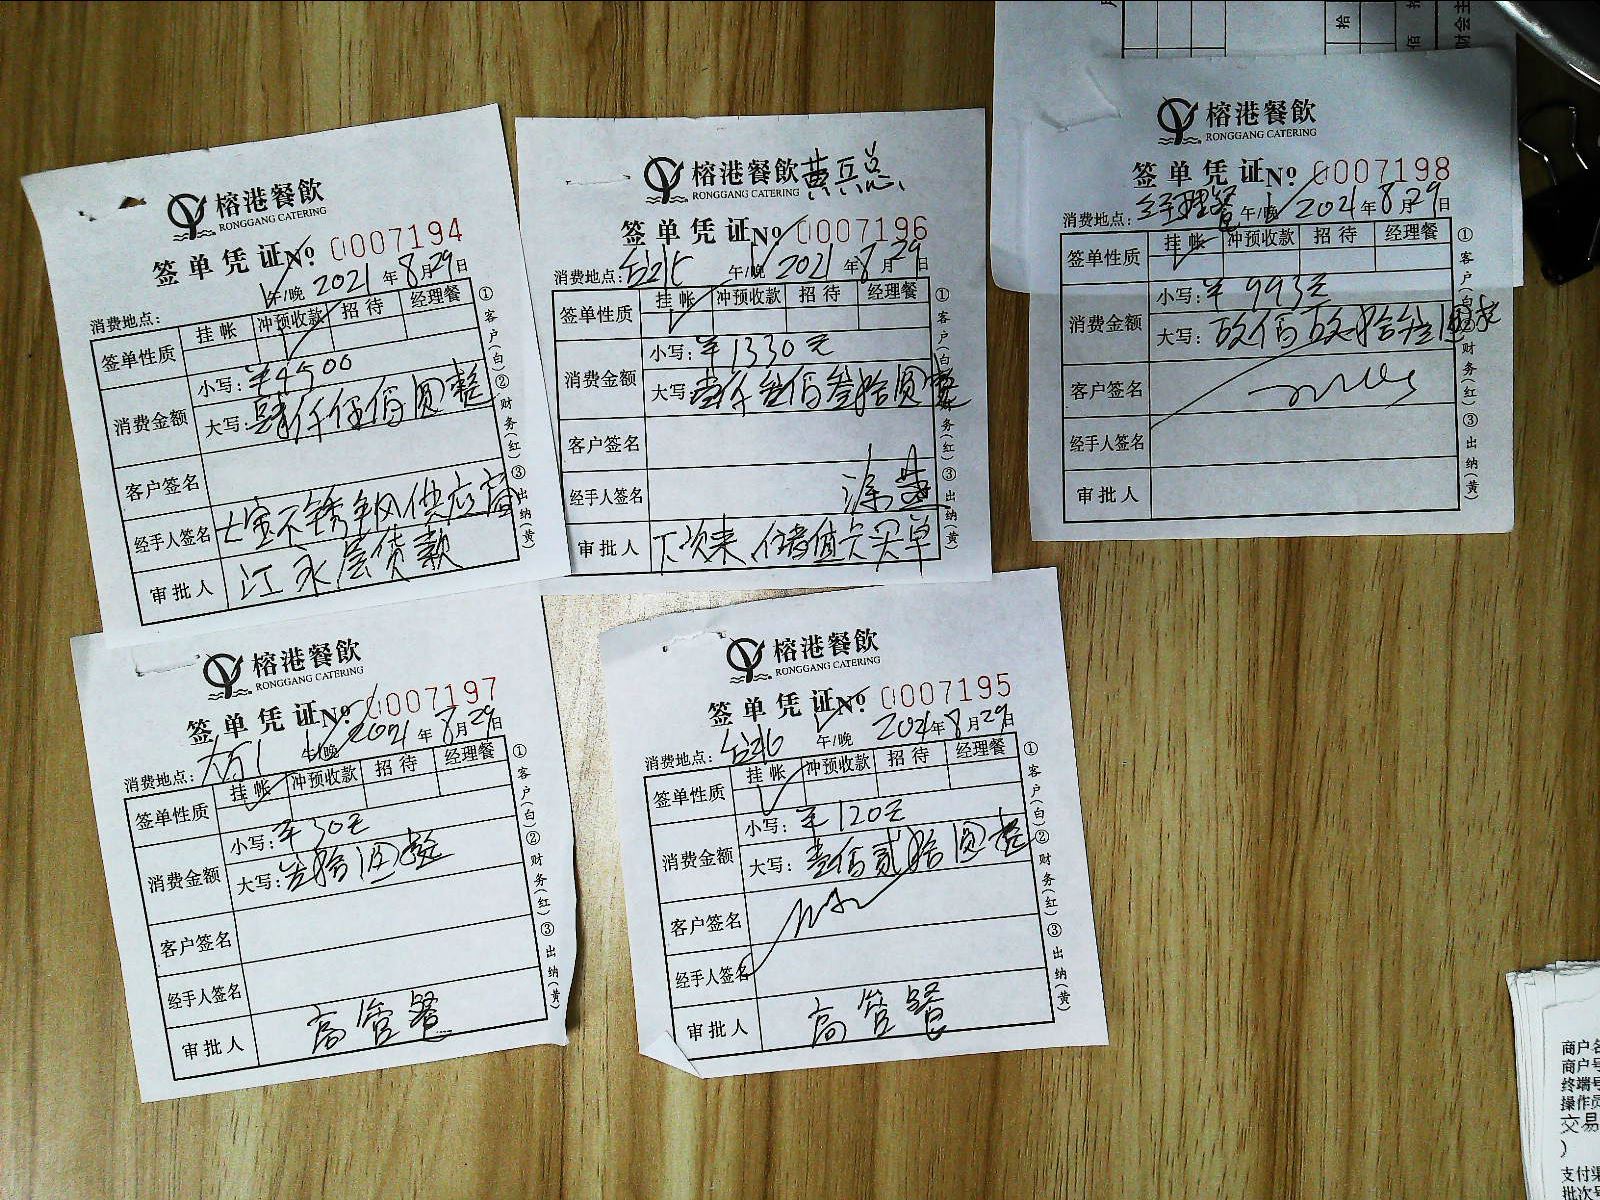 榕港餐飲
RONGGANG CATERING
签单凭证 № 0007194
消费地点: 午/晚 2021年8月29日
签单性质 挂帐 冲预收款 招待 经理餐
消费金额 小写: ¥4500
大写: 肆仟伍佰圆整
客户签名
经手人签名 不锈钢供应商
审批人 江永层货款
①客户(白)②财务(红)③出纳(黄)
榕港餐飲 黄兵总
RONGGANG CATERING
签单凭证 № 0007196
消费地点: 午/晚 2021年8月29日
签单性质 挂帐 冲预收款 招待 经理餐
消费金额 小写: ¥1330元
大写: 壹仟叁佰叁拾圆整
客户签名
经手人签名 涂
审批人 下次来储值卡买单
①客户(白)②财务(红)③出纳(黄)
榕港餐飲
RONGGANG CATERING
签单凭证 № 0007198
消费地点: 经理餐 午/晚 2021年8月29日
签单性质 挂帐 冲预收款 招待 经理餐
消费金额 小写: ¥993元
大写: 玖佰玖拾叁圆整
客户签名
经手人签名
审批人
①客户(白)②财务(红)③出纳(黄)
榕港餐飲
RONGGANG CATERING
签单凭证 № 0007197
消费地点: 午/晚 2021年8月29日
签单性质 挂帐 冲预收款 招待 经理餐
消费金额 小写: ¥30元
大写: 叁拾圆整
客户签名
经手人签名
审批人 高管餐
①客户(白)②财务(红)③出纳(黄)
榕港餐飲
RONGGANG CATERING
签单凭证 № 0007195
消费地点: 午/晚 2021年8月29日
签单性质 挂帐 冲预收款 招待 经理餐
消费金额 小写: ¥120元
大写: 壹佰贰拾圆整
客户签名
经手人签名
审批人 高管餐
①客户(白)②财务(红)③出纳(黄)
拾
佰
财会主
商户名
商户号
终端号
操作员
交易
)
支付渠
批次号